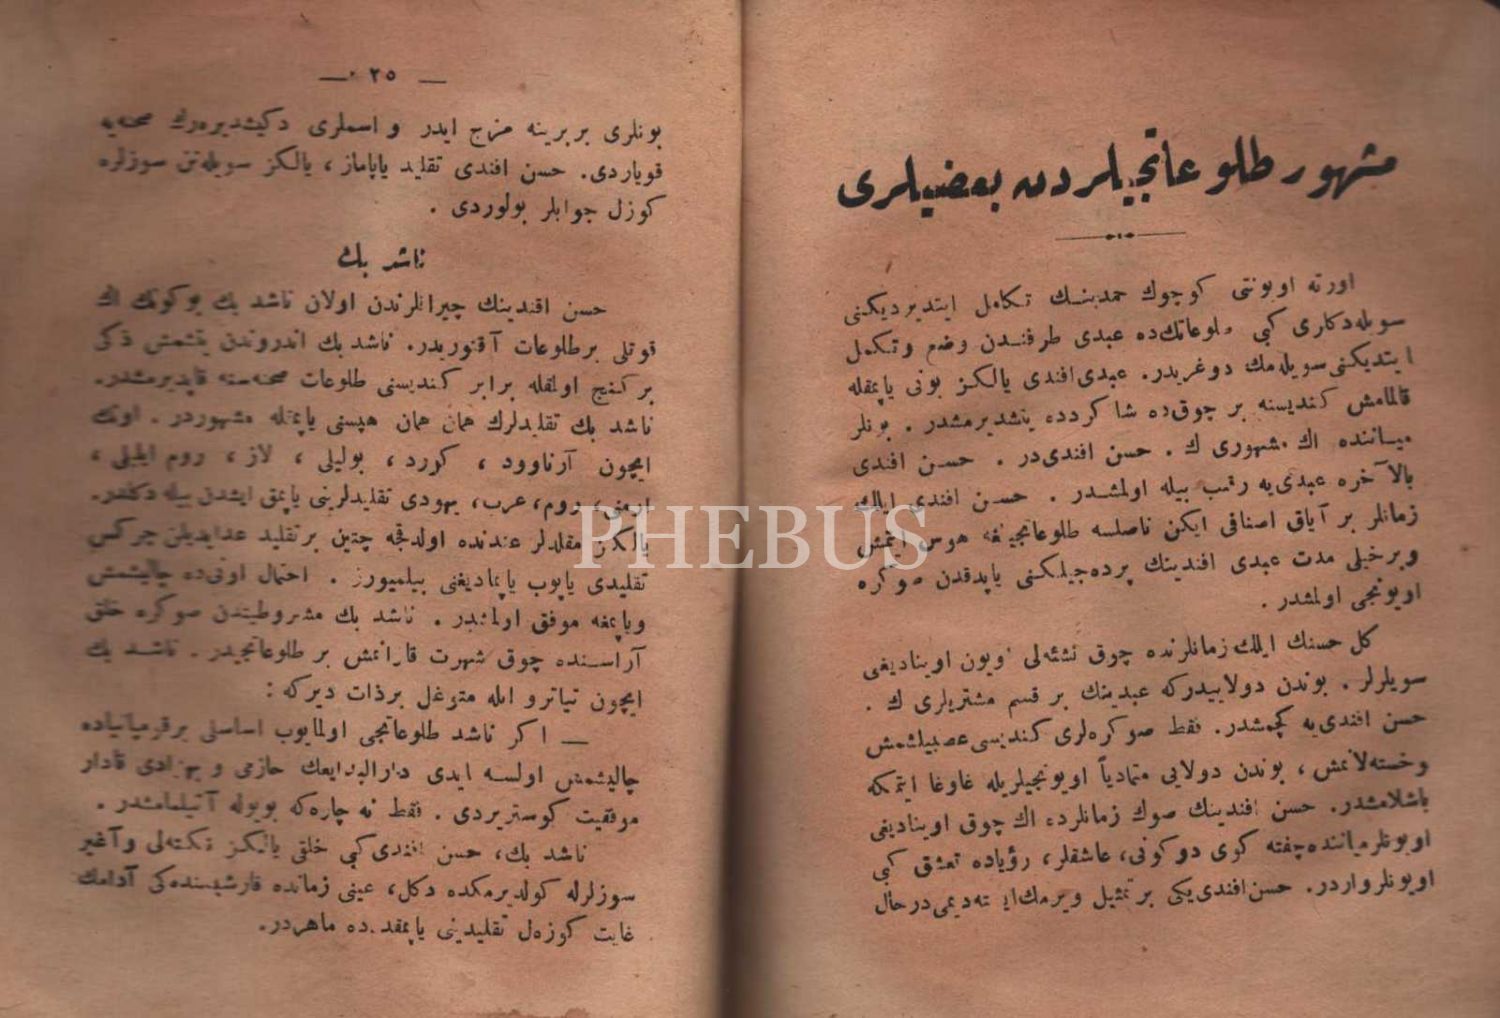 مشهور طلوعاتجیلردن بعضیلری
اورته اویونی کوچوك حمدینك تكامل ایتدیردیکنی
سویله‌دکلری کبی طلوعاتك‌ده عبدی طرفندن وضع وتكمل
ایتدیکنی سویله‌مك دوغریدر. عبدی افندی یالکز بونی یاپمقله
قالمامش کندیسنه بر چوق‌ده شاکردده یتشدیرمشدر . بونلر
میاننده اك مشهوری ك . حسن افندی‌در . حسن افندی
بالآخره عبدی‌یه رقیب بیله اولمشدر . حسن افندی ایلك
زمانلر بر آیاق اصنافی ایکن ناصلسه طلوعاتجیلغه هوس ایتمش
وبرخیلی مدت عبدی افندینك پرده‌جیلکنی یاپدقدن صوکره
اویونجی اولمشدر .
کل حسنك ایلك زمانلرنده چوق نشئه‌لی اویون اوینادیغی
سویلرلر . بوندن دولاییدرکه عبدینك بر قسم مشتریلری ك .
حسن افندی‌یه کچمشدر. فقط صوکره‌لری کندیسی عصبیلشمش
وخسته‌لانمش ، بوندن دولایی متمادیاً اویونجیلریله غاوغا ایتمکه
باشلامشدر. حسن افندینك صوك زمانلرده اك چوق اوینادیغی
اویونلر میاننده چفته کوی دوکونی، عاشقلر، رؤیاده تعشق کبی
اویونلر واردر. حسن افندی یکی بر تمثیل ویرمك ایسته‌دیمی درحال
— ٢٥ —
بونلری بربرینه مزج ایدر و اسملری دکیشدیره‌رك صحنه‌یه
قویاردی. حسن افندی تقلید یاپاماز ، یالکز سویله‌نن سوزلره
کوزل جوابلر بولوردی .
ناشد بك
حسن افندینك چیراقلرندن اولان ناشد بك بوکونك اك
قوتلی بر طلوعات آقتوریدر. ناشد بك اندروندن یتشمش ذکی
بر کنج اولمقله برابر کندیسنی طلوعات صحنه‌سنه قاپدیرمشدر.
ناشد بك تقلیدلرك همان همان هپسنی یاپمقله مشهوردر . اونك
ایچون آرناوود ، کورد ، بولیلی ، لاز ، روم ایلیلی ،
ارمنی، روم، عرب، یهودی تقلیدلرینی یاپمق ایشدن بیله دکلدر.
یالکز مقلدلر عندنده اولدقجه چتین بر تقلید عدایدیلن چرکس
تقلیدی یاپوب یاپمادیغنی بیلمیورز . احتمال اونی‌ده چالیشمش
ویاپمغه موفق اولمشدر . ناشد بك مشروطیتدن صوکره خلق
آراسنده چوق شهرت قازانمش بر طلوعاتجیدر . ناشد بك
ایچون تیاترو ایله متوغل بر ذات دیرکه :
— اکر ناشد طلوعاتجی اولمایوب اساسلی بر قومپانیاده
چالیشمش اولسه ایدی دارالبدایعك حازمی و بهزادی قادار
موفقیت کوستریردی . فقط نه چاره‌که بویوله آتیلمامشدر .
ناشد بك، حسن افندی کبی خلقی یالکز نکته‌لی وآغیر
سوزلرله کولدیرمکده دکل، عینی زمانده قارشیسنده‌کی آدامك
غایت کوزه‌ل تقلیدینی یاپمقده‌ده ماهردر.
PHEBUS